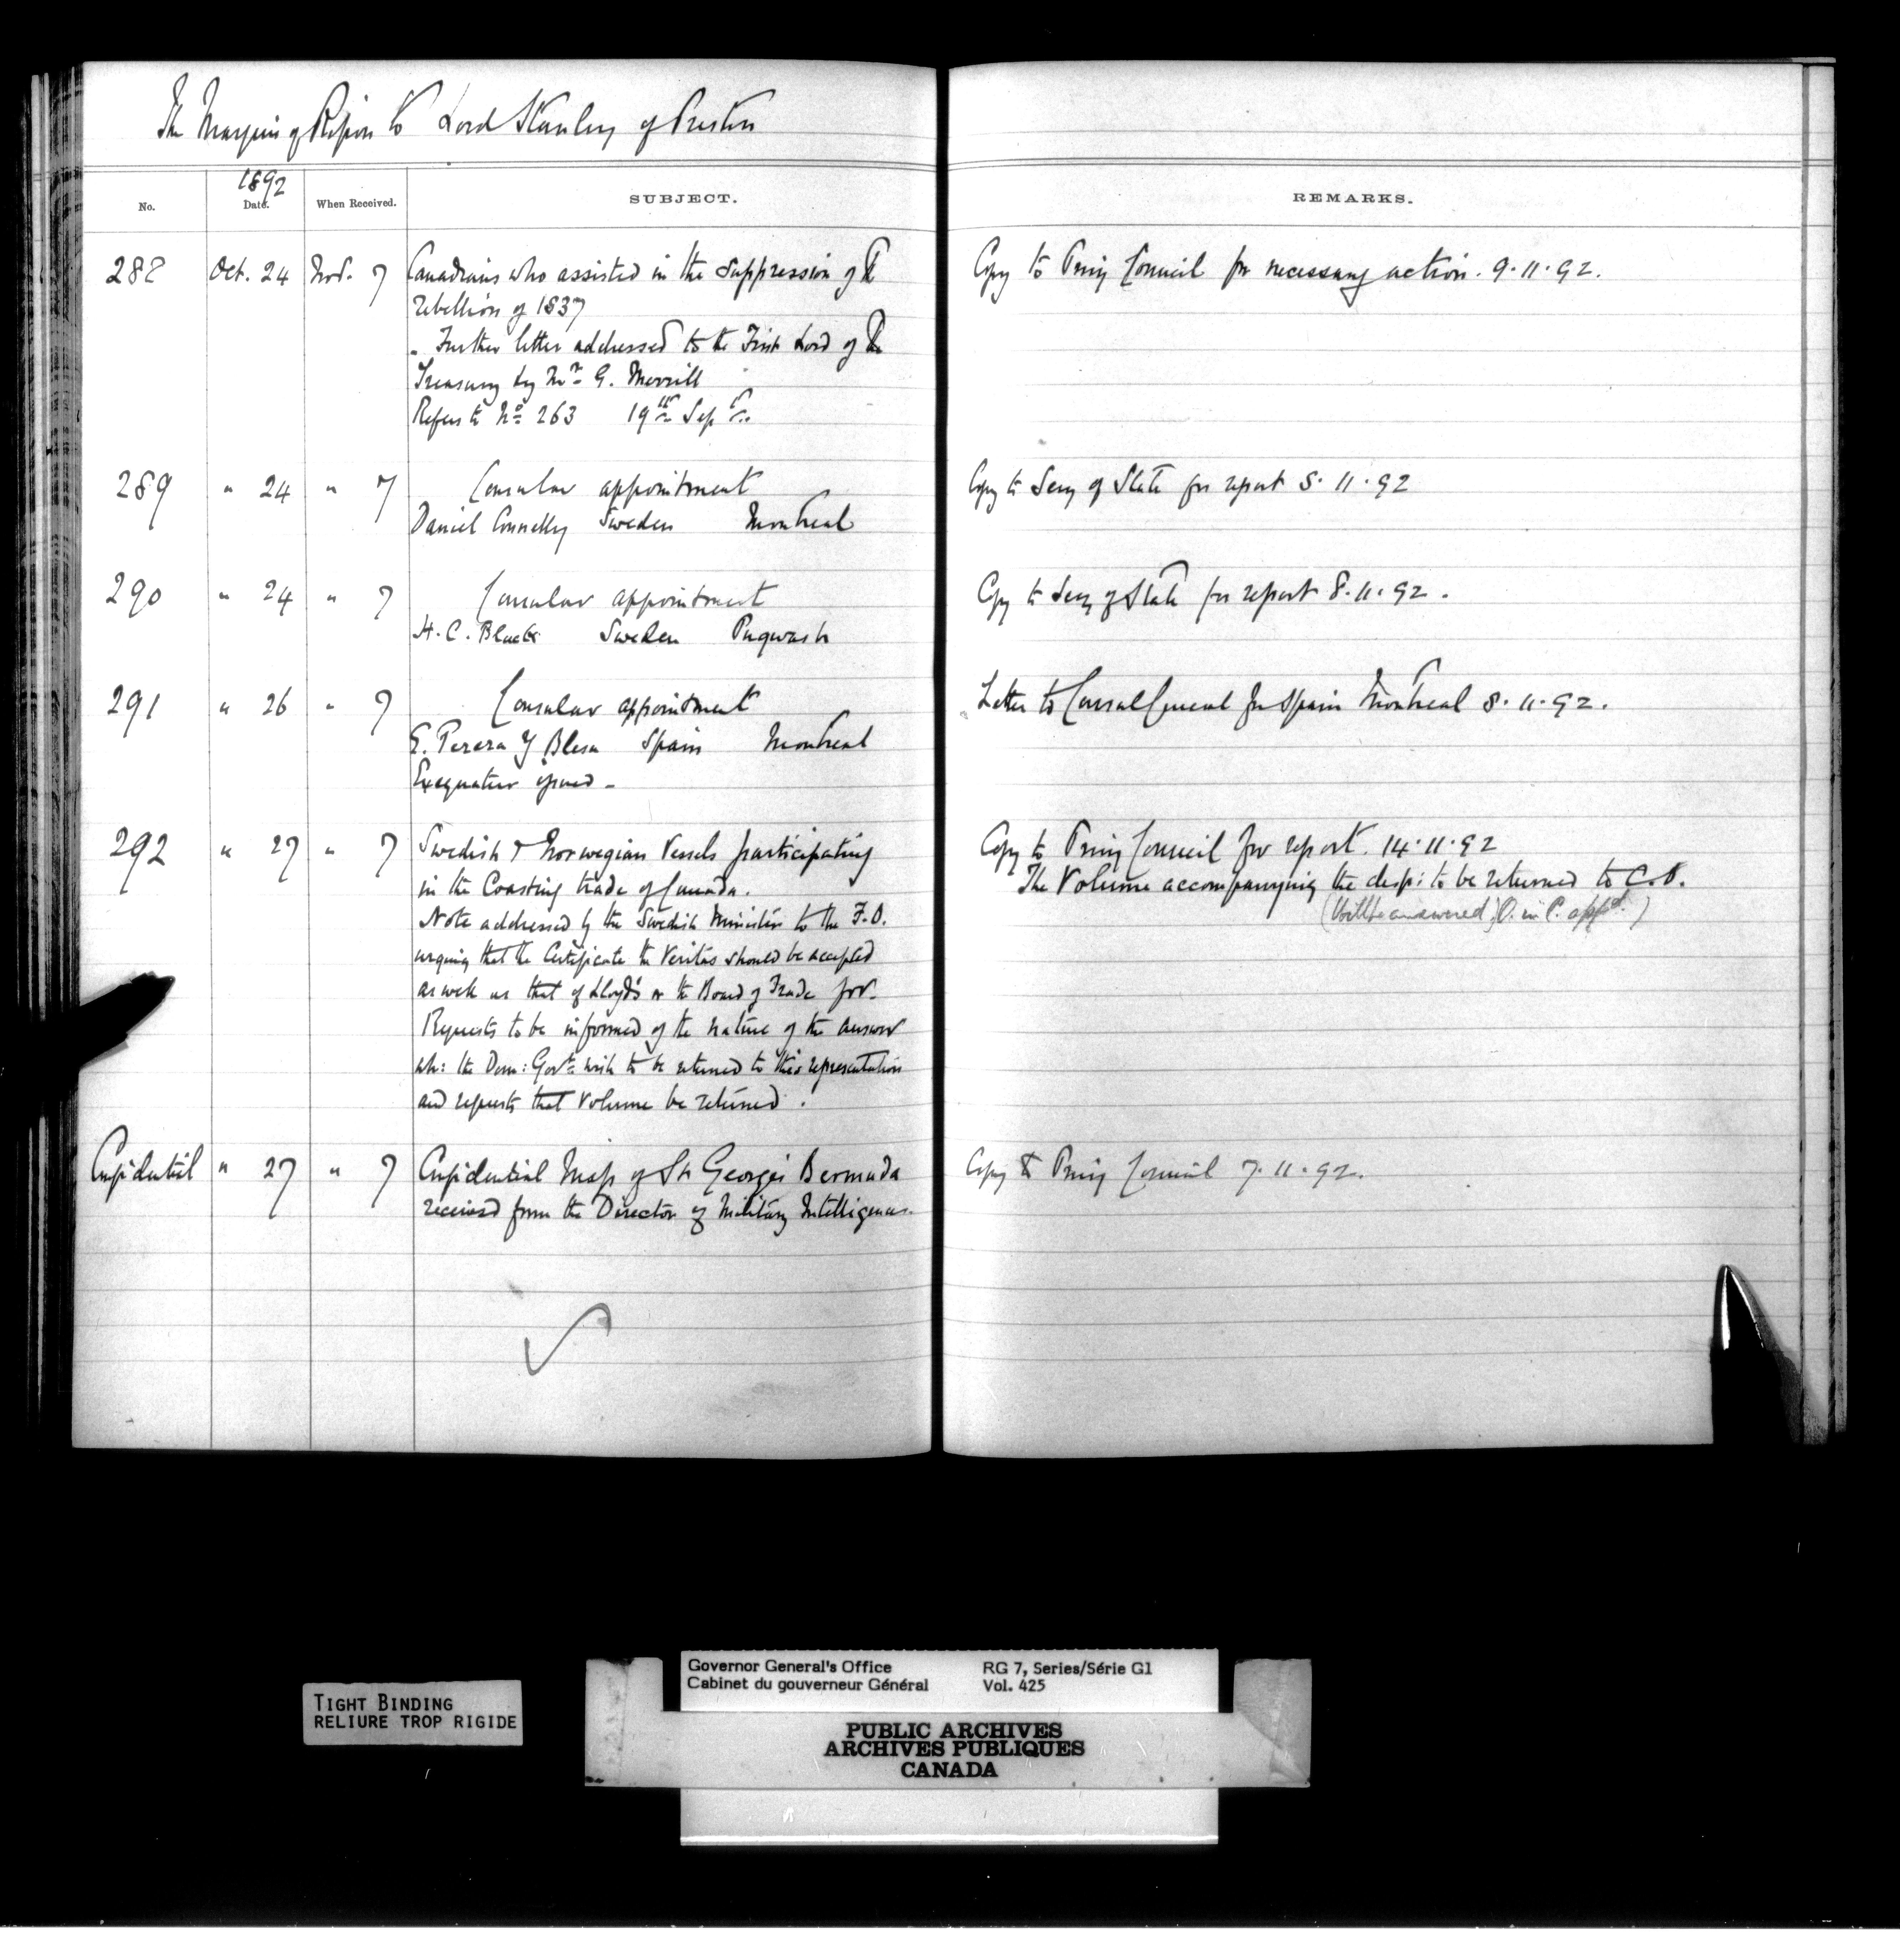 The Marquis of Ripon to Lord Stanley of Preston
1892
No. Date. When Received. SUBJECT. REMARKS.
288 Oct. 24 Nov. 7 Canadians who assisted in the suppression of the Copy to Privy Council for necessary action. 9.11.92.
rebellion of 1837
" Further letter addressed to the First Lord of the
Treasury by Mr G. Merrill
Refers to No 263 19th Sept.
289 " 24 " 7 Consular appointment Copy to Secy of State for report 8.11.92
Daniel Connelly Sweden Montreal
290 " 24 " 7 Consular appointment Copy to Secy of State for report 8.11.92.
H. C. Black Sweden Pugwash
291 " 26 " 7 Consular appointment Letter to Consul General for Spain Montreal 8.11.92.
E. Perera Y Blesa Spain Montreal
Exequatur issued -
292 " 27 " 7 Swedish & Norwegian Vessels participating Copy to Privy Council for report. 14.11.92
in the Coasting trade of Canada. The Volume accompanying the desp: to be returned to C.O.
Note addressed by the Swedish Minister to the F.O. (Will be answered, O. in C. appd.)
urging that the Certificate the Veritas should be accepted
as well as that of Lloyd's or the Board of Trade for.
Requests to be informed of the nature of the answer
wh: the Dom: Govt. wish to be returned to this representation
and requests that Volume be returned.
Confidential " 27 " 7 Confidential Map of St Georges Bermuda Copy to Privy Council 7.11.92.
received from the Director of Military Intelligence.
TIGHT BINDING
RELIURE TROP RIGIDE
Governor General's Office RG 7, Series/Série G1
Cabinet du gouverneur Général Vol. 425
PUBLIC ARCHIVES
ARCHIVES PUBLIQUES
CANADA